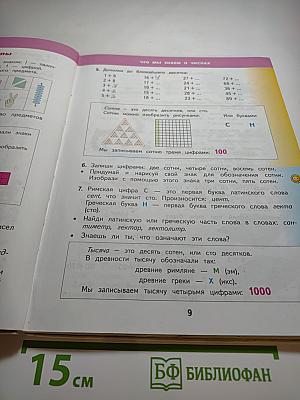 ЧТО МЫ ЗНАЕМ О ЧИСЛАХ
5. Дополни до ближайшего десятка:
Сотня — это десять десятков, или сто.
Сотню можно изобразить рисунками:
Или буквами
С Н
Мы записываем сотню тремя цифрами: 100
6. Запиши цифрами: две сотни, четыре сотни, восемь сотен.
• Придумай и нарисуй свой знак для обозначения сотни.
Изобрази с помощью этого знака три сотни, пять сотен.
7. Римская цифра С — это первая буква латинского слова
cent, что значит сто. Произносится: цента.
Греческая буква Н — первая буква греческого слова гекто
(сто).
• Найди латинскую или греческую часть в словах: сан-
тиметр, гектар, гектолитр.
• Знаешь ли ты, что означают эти слова?
Тысяча — это десять сотен, или сто десятков.
В древности тысячу обозначали так:
древние римляне — М (эм),
древние греки — Х (икс).
Мы записываем тысячу четырьмя цифрами: 1000
9
15 см
БФ БИБЛИОФАН